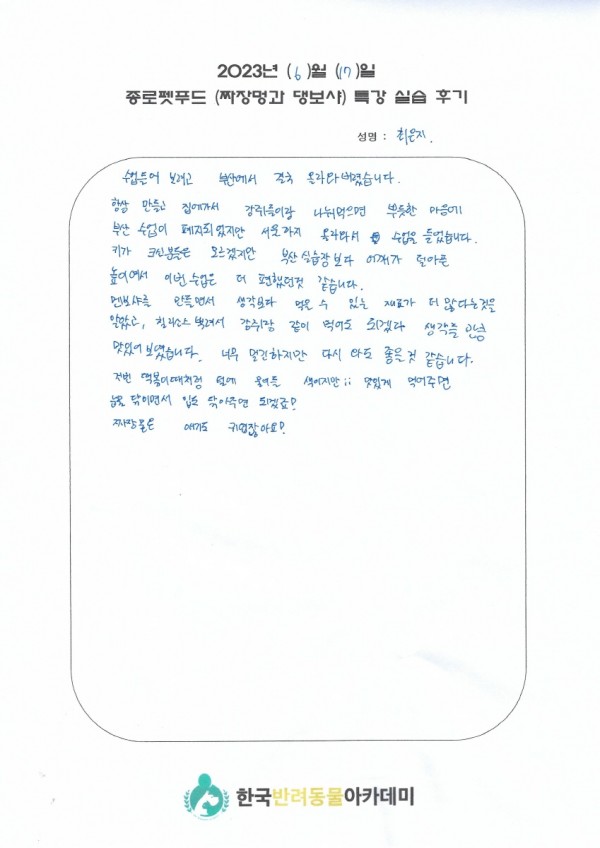 2023년 (6)월 (17)일
종로펫푸드 (짜장멍과 댕보샤) 특강 실습 후기
성명 : 최은지.
수업들어 보려고 부산에서 결국 올라와버렸습니다.
항상 만들고 집에가서 강쥐들이랑 나눠먹으면 뿌듯한 마음에
부산 수업이 폐지되었지만 서울까지 올라와서 수업을 들었습니다.
키가 크신분들은 모르겠지만 부산 실습장보다 어깨가 덜아픈
높이여서 이번 수업은 더 편했던것 같습니다.
멘보샤를 만들면서 생각보다 먹을 수 있는 재료가 더 많다는것을
알았고, 칠리소스 뿌려서 강쥐랑 같이 먹어도 되겠다 생각들 만큼
맛있어보였습니다. 너무 멀긴하지만 다시 와도 좋을것 같습니다.
저번 떡볶이때처럼 털에 물이들 색이지만;; 맛있게 먹어주면
눈물 닦이면서 입도 닦아주면 되겠죠?
짜장물은 애기도 귀엽잖아요?
한국반려동물아카데미